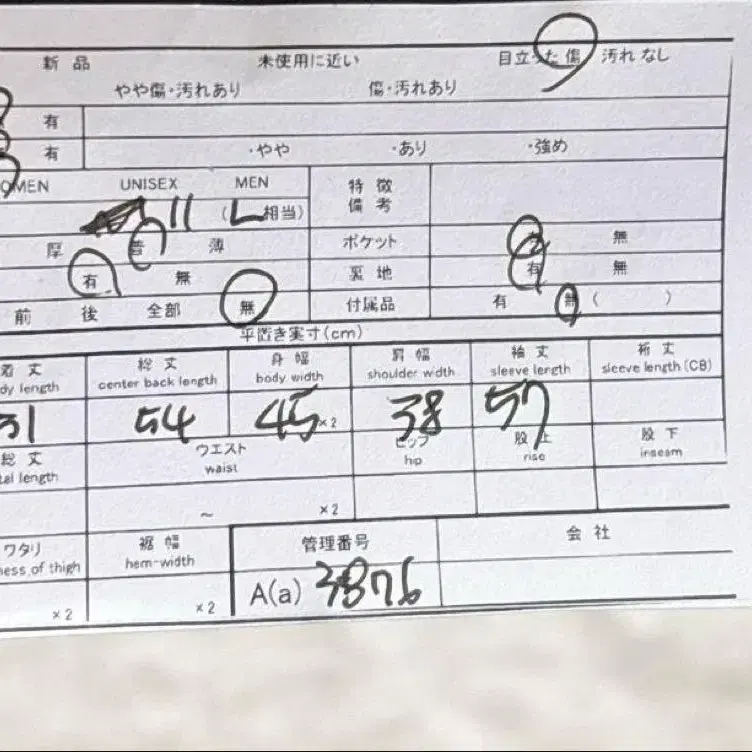 新品 未使用に近い 目立った傷 汚れなし
やや傷・汚れあり 傷・汚れあり
有
有 ・やや ・あり ・強め
OMEN UNISEX MEN 特徴
備考
11 (L相当)
厚 普 薄 ポケット 有 無
有 無 裏地 有 無
前 後 全部 無 付属品 有 無 ( )
平置き実寸(cm)
着丈 総丈 身幅 肩幅 袖丈 裄丈
dy length center back length body width shoulder width sleeve length sleeve length (CB)
51 54 45×2 38 57
総丈 ウエスト ヒップ 股上 股下
tal length waist hip rise inseam
~ ×2
ワタリ 裾幅 管理番号 会社
ness of thigh hem-width
×2 ×2 A(a) 3876